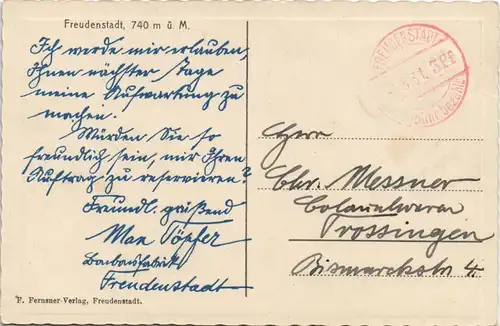 Freudenstadt, 740 m ü. M.
Ich werde mir erlauben,
Ihnen nächster Tage
meine Aufwartung zu
machen.
Würden Sie so
freundlich sein, mir Ihren
Auftrag zu reservieren?
Freundl. grüßend
Max Töpfer
Bonbonfabrik
Freudenstadt
F. Fernsner-Verlag, Freudenstadt.
FREUDENSTADT
31. 3 Pf
Gebühr bezahlt
Herrn
Chr. Messner
Colonialwaren
Trossingen
Bismarckstr 4.